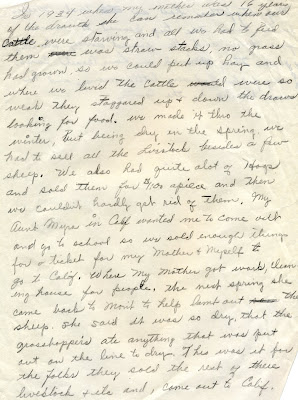 In 1934 when my mother was 16 years
of the drouth she can remember when our
Cattle were starving and all we had to feed
them was straw stacks, no grass
had grown, so we could put up hay and
where we lived the Cattle were so
weak they staggered up & down the draws
looking for food. we made it thro the
winter, But being dry in the spring we
had to sell all the livestock besides a few
sheep. We also had quite alot of Hogs
and sold them for apiece and then
we couldn't hardly get rid of them. My
Aunt Myra in Calif wanted me to come out
and go to school so we sold enough things
for a ticket for my Mother & Myself to
go to Calif. Where My Mother got work, clean
ing house for people. the next spring she
came back to Mont to help lamb out the
sheep. She said it was so dry, that the
grasshoppers ate anything that was put
out on the line to dry. This was it for
the folks they sold the rest of there
livestock & etc and, come out to Calif.